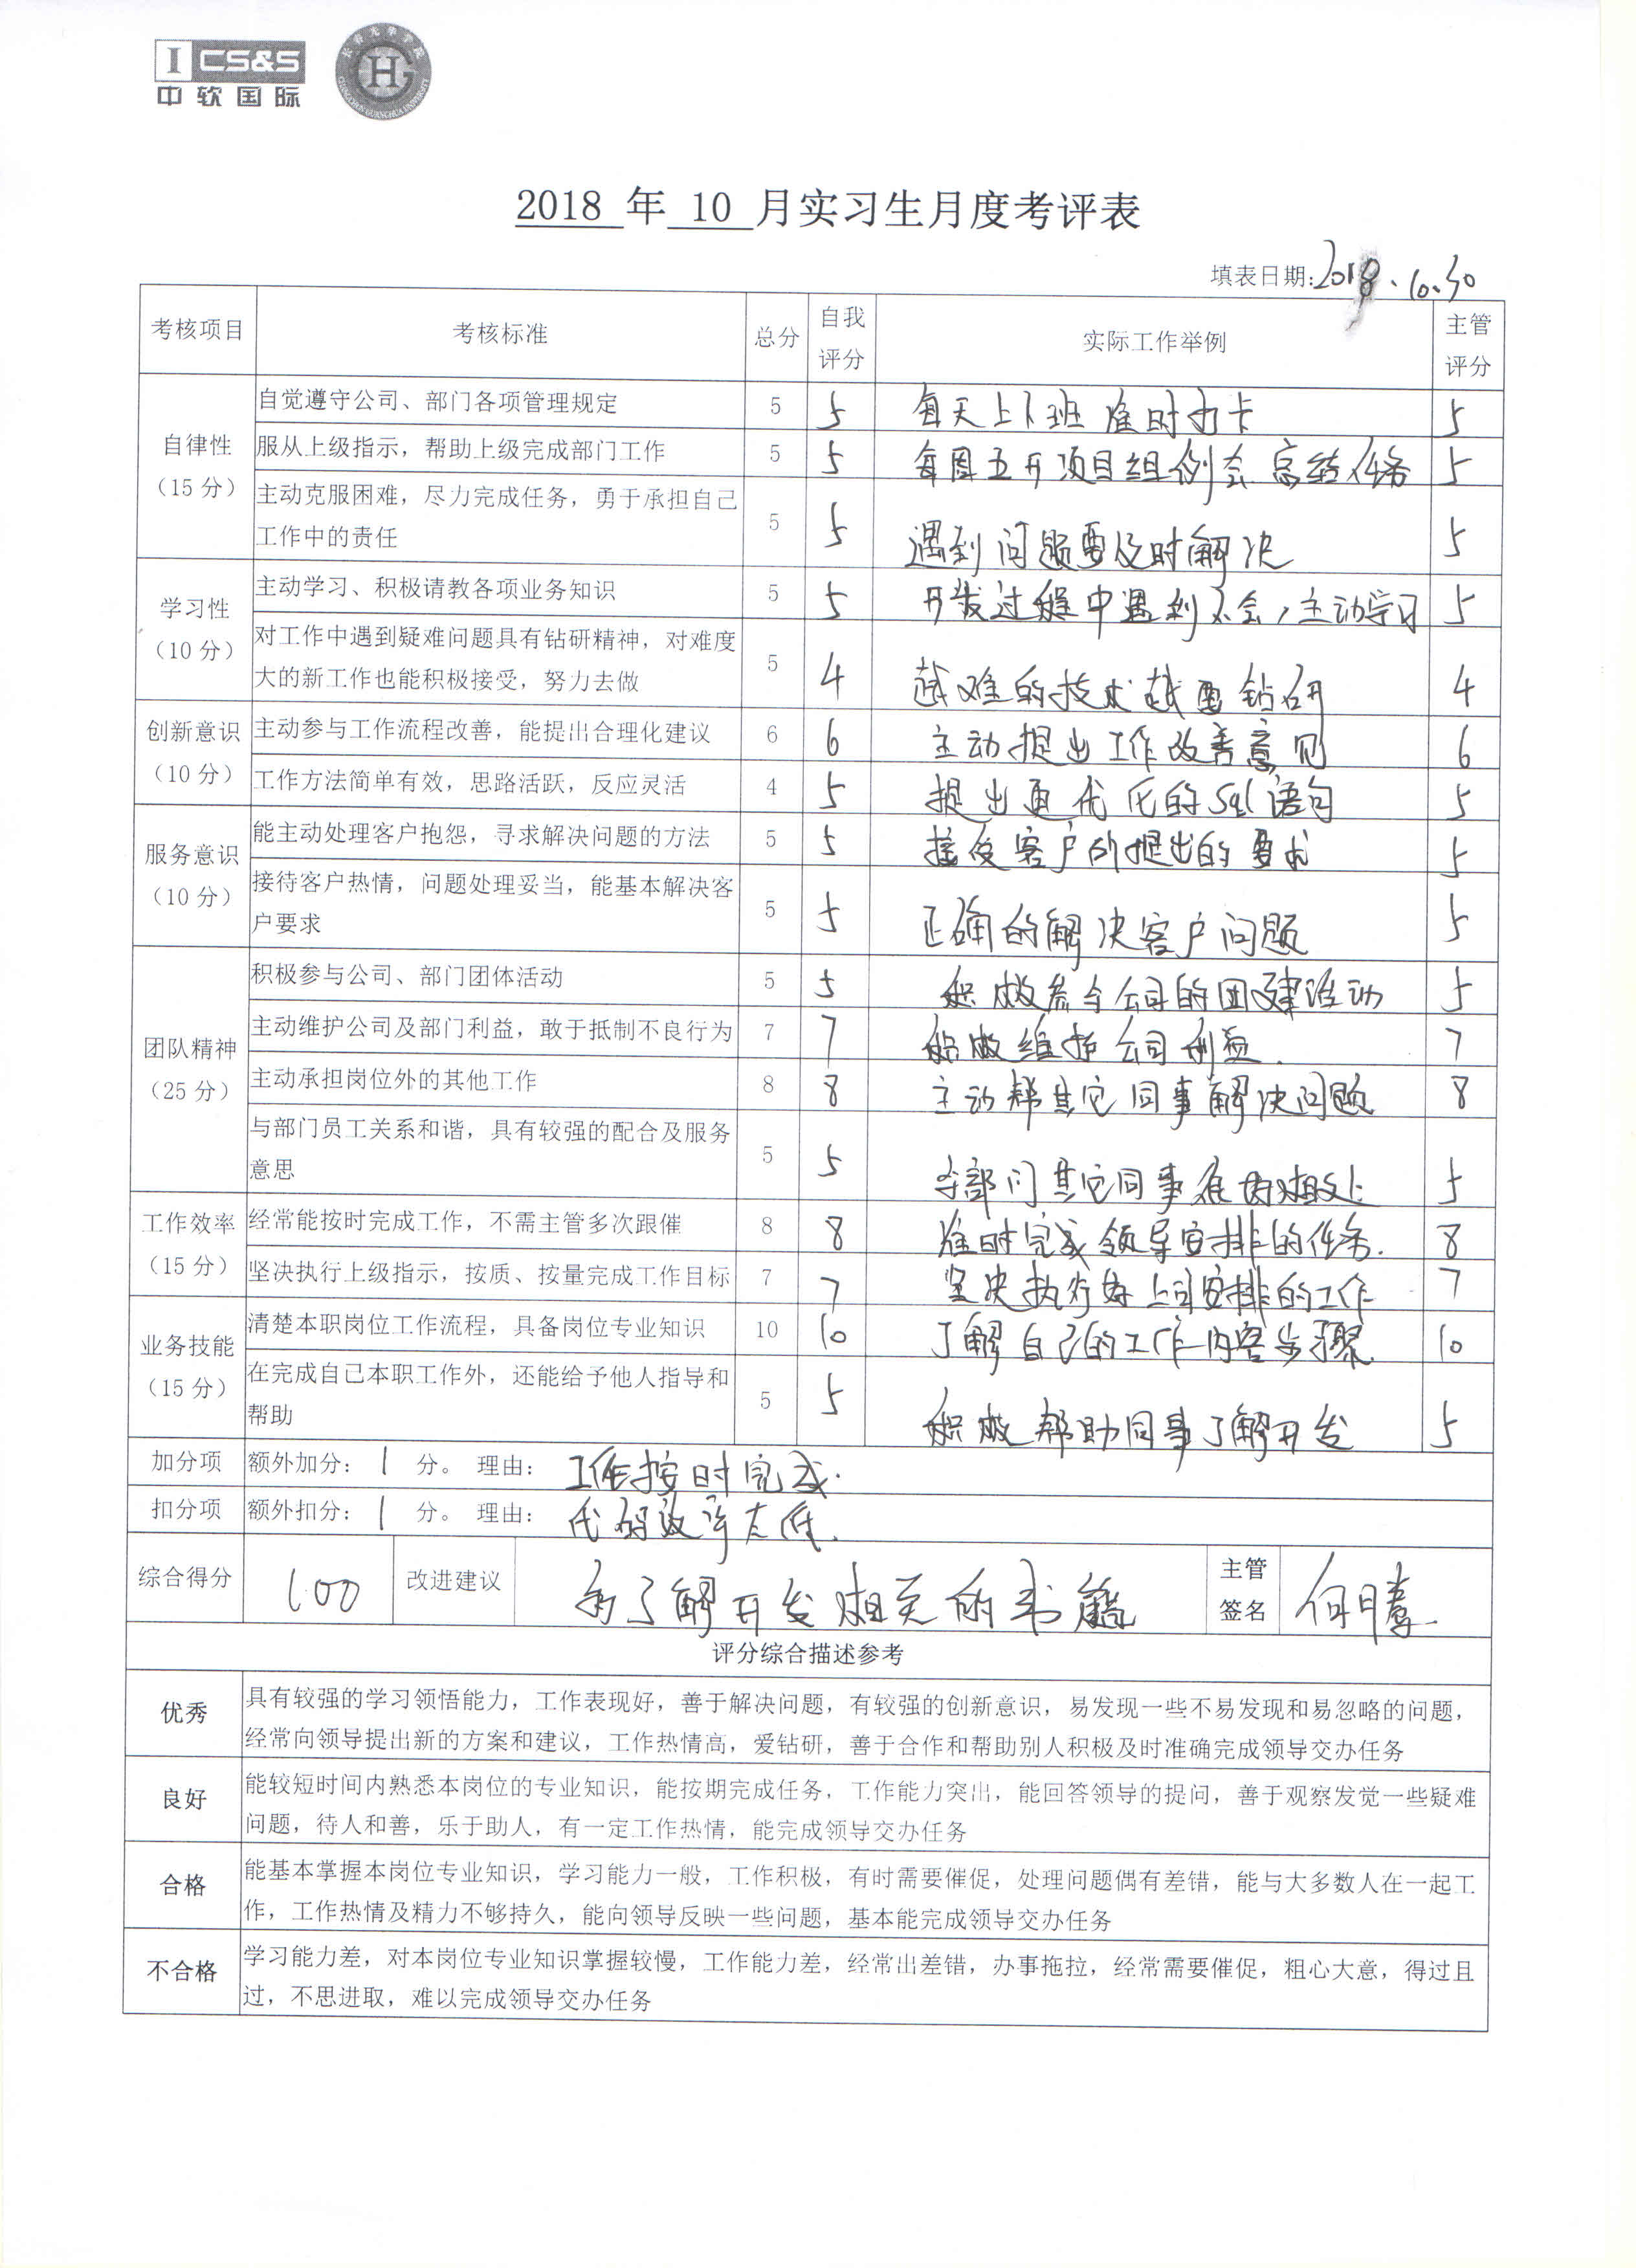 I CS&S
中软国际
长春光华学院
CHANGCHUN GUANGHUA UNIVERSITY
2018 年 10 月实习生月度考评表
填表日期:2018.10.30
考核项目 考核标准 总分 自我评分 实际工作举例 主管评分
自律性（15分）
自觉遵守公司、部门各项管理规定 5 5 每天上下班准时打卡 5
服从上级指示，帮助上级完成部门工作 5 5 每周五开项目组例会总结任务 5
主动克服困难，尽力完成任务，勇于承担自己
工作中的责任 5 5 遇到问题要及时解决 5
学习性（10分）
主动学习、积极请教各项业务知识 5 5 开发过程中遇到不会，主动学习 5
对工作中遇到疑难问题具有钻研精神，对难度
大的新工作也能积极接受，努力去做 5 4 越难的技术越要钻研 4
创新意识（10分）
主动参与工作流程改善，能提出合理化建议 6 6 主动提出工作改善意见 6
工作方法简单有效，思路活跃，反应灵活 4 5 提出更优化的sql语句 5
服务意识（10分）
能主动处理客户抱怨，寻求解决问题的方法 5 5 接受客户所提出的要求 5
接待客户热情，问题处理妥当，能基本解决客
户要求 5 5 正确的解决客户问题 5
团队精神（25分）
积极参与公司、部门团体活动 5 5 积极参与公司的团建活动 5
主动维护公司及部门利益，敢于抵制不良行为 7 7 积极维护公司利益. 7
主动承担岗位外的其他工作 8 8 主动帮其它同事解决问题 8
与部门员工关系和谐，具有较强的配合及服务
意思 5 5 与部门其它同事友好相处 5
工作效率（15分）
经常能按时完成工作，不需主管多次跟催 8 8 准时完成领导安排的任务. 8
坚决执行上级指示，按质、按量完成工作目标 7 7 坚决执行好上司安排的工作 7
业务技能（15分）
清楚本职岗位工作流程，具备岗位专业知识 10 10 了解自己的工作内容步骤 10
在完成自己本职工作外，还能给予他人指导和
帮助 5 5 积极帮助同事了解开发 5
加分项 额外加分： 1 分。 理由： 工作按时完成.
扣分项 额外扣分： 1 分。 理由： 代码效率太低.
综合得分 100 改进建议 多了解开发相关的书籍 主管签名
评分综合描述参考
优秀 具有较强的学习领悟能力，工作表现好，善于解决问题，有较强的创新意识，易发现一些不易发现和易忽略的问题，
经常向领导提出新的方案和建议，工作热情高，爱钻研，善于合作和帮助别人积极及时准确完成领导交办任务
良好 能较短时间内熟悉本岗位的专业知识，能按期完成任务，工作能力突出，能回答领导的提问，善于观察发觉一些疑难
问题，待人和善，乐于助人，有一定工作热情，能完成领导交办任务
合格 能基本掌握本岗位专业知识，学习能力一般，工作积极，有时需要催促，处理问题偶有差错，能与大多数人在一起工
作，工作热情及精力不够持久，能向领导反映一些问题，基本能完成领导交办任务
不合格 学习能力差，对本岗位专业知识掌握较慢，工作能力差，经常出差错，办事拖拉，经常需要催促，粗心大意，得过且
过，不思进取，难以完成领导交办任务